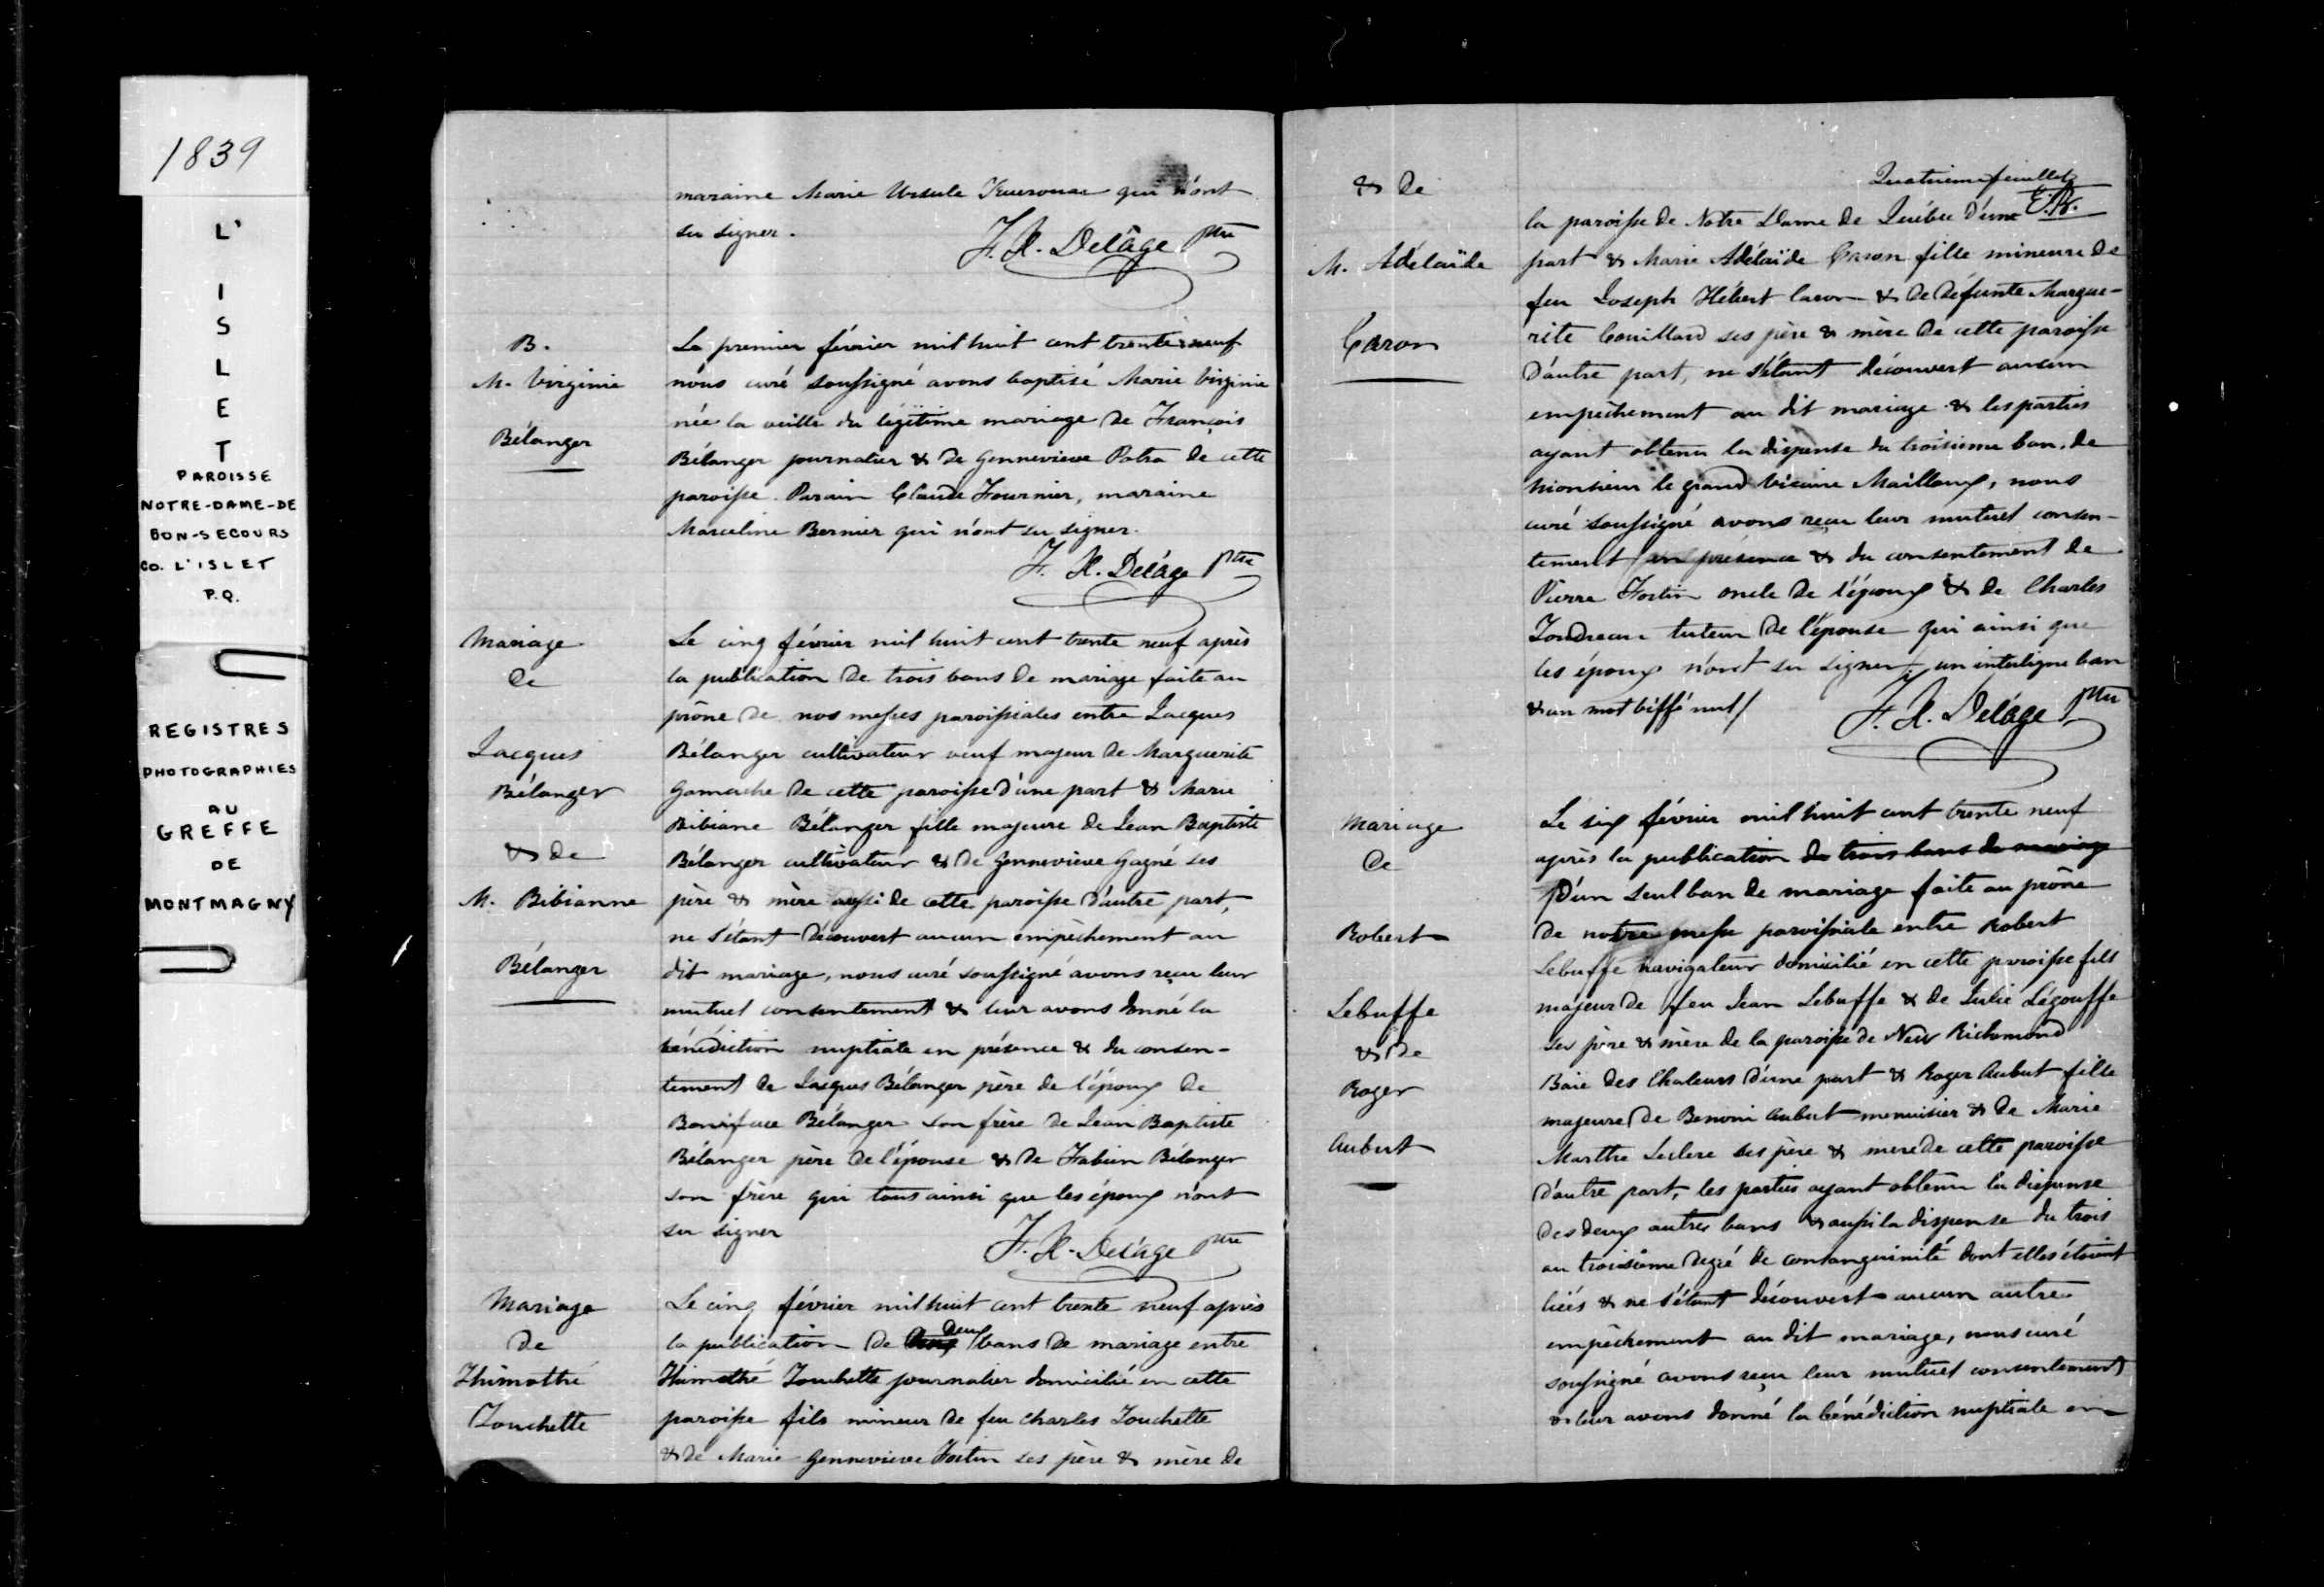 1839
L'
I
S
L
E
T
PAROISSE
NOTRE-DAME-DE
BON-SECOURS
CO. L'ISLET
P.Q.
REGISTRES
PHOTOGRAPHIES
AU
GREFFE
DE
MONTMAGNY
maraine Marie Ursule qui n'ont
su signer.
F. X. Delâge Ptre
B.
M. Virginie
Bélanger
Le premier février mil huit cent trente neuf
nous curé soussigné avons baptisé Marie Virginie
née la veille du légitime mariage de François
Bélanger journalier & de Gennevieve Potra de cette
paroisse. Parain Claude Fournier, maraine
Marceline Bernier qui n'ont su signer.
F. X. Delâge Ptre
Mariage
de
Jacques
Bélanger
& de
M. Bibianne
Bélanger
Le cinq février mil huit cent trente neuf après
la publication de trois bans de mariage faite au
prône de nos messes paroissiales entre Jacques
Bélanger cultivateur veuf majeur de Marguerite
Gamache de cette paroisse d'une part & Marie
Bibiane Bélanger fille majeure de Jean Baptiste
Bélanger cultivateur & de Gennevieve Gagné ses
père & mère aussi de cette paroisse d'autre part,
ne s'étant découvert aucun empêchement au
dit mariage, nous curé soussigné avons reçu leur
mutuel consentement & leur avons donné la
bénédiction nuptiale en présence & du consen-
tement de Jacques Bélanger père de l'époux de
Boniface Bélanger son frère de Jean Baptiste
Bélanger père de l'épouse & de Fabien Bélanger
son frère qui tous ainsi que les époux n'ont
su signer
F. X. Delâge Ptre
Mariage
de
Thimothé
Touchette
Le cinq février mil huit cent trente neuf après
la publication de deux bans de mariage entre
Thimothé Touchette journalier domicilié en cette
paroisse fils mineur de feu Charles Touchette
& de Marie Gennevieve Fortin ses père & mère de
Quatrieme feuillet
& de
M. Adélaïde
Caron
la paroisse de Notre Dame de Québec d'une
part & Marie Adélaïde Caron fille mineure de
feu Joseph Hébert Caron & de défunte Margue-
rite Couillard ses père & mère de cette paroisse
d'autre part, ne s'étant découvert aucun
empêchement au dit mariage & les parties
ayant obtenu la dispense du troisieme ban de
Monsieur le grand Vicaire Mailloux, nous
curé soussigné avons reçu leur mutuel consen-
tement en présence & du consentement de
Pierre Fortin oncle de l'époux & de Charles
Tondreau tuteur de l'épouse qui ainsi que
les époux n'ont su signer. un interligne bon
& un mot biffé nul/
F. X. Delâge Ptre
Mariage
de
Robert
Lebuffe
& de
Roger
Aubert
Le six février mil huit cent trente neuf
après la publication de trois bans de mariage
d'un seul ban de mariage faite au prône
de notre messe paroissiale entre Robert
Lebuffe navigateur domicilié en cette paroisse fils
majeur de feu Jean Lebuffe & de Julie Légouffe
ses père & mère de la paroisse de New Richmond
Baie des Chaleurs d'une part & Roger Aubut fille
majeure de Benoni Aubut menuisier & de Marie
Marthe Leclerc ses père & mère de cette paroisse
d'autre part, les parties ayant obtenu la dispense
des deux autres bans & aussi la dispense du trois
au troisième degré de consanguinité dont elles étoient
liées & ne s'étant découvert aucun autre
empêchement au dit mariage, nous curé
soussigné avons reçu leur mutuel consentement
& leur avons donné la bénédiction nuptiale en